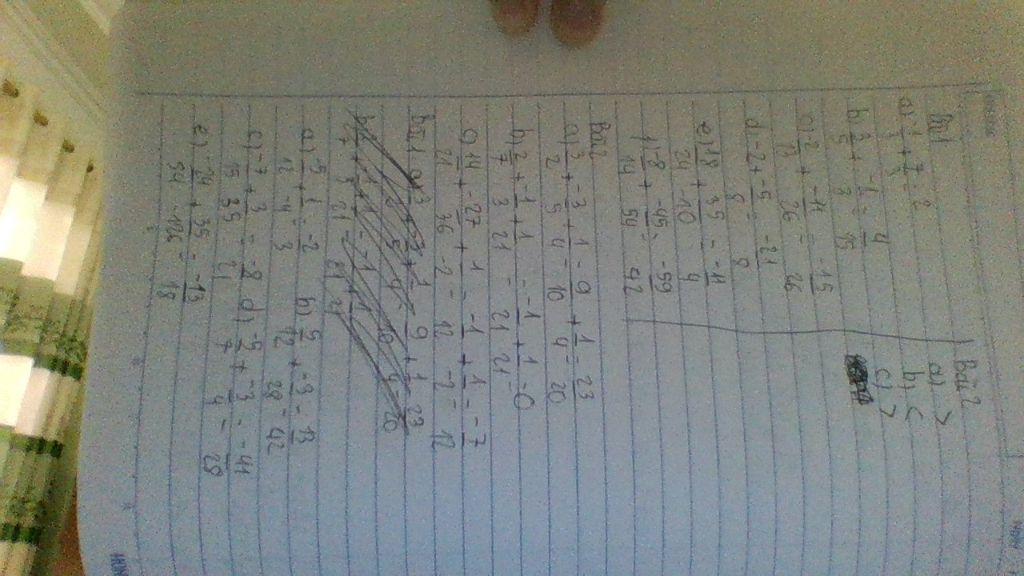 Bài 1
Bài 2
a) 1/3 + 7/3 = 2
a) >
b) 3/5 + -1/3 = 4/15
b) <
c) 2/13 + -11/26 = -15/26
c) >
d) -2 + -5/8 = -21/8
e) 18/24 + 35/-10 = -11/4
f) -8/14 + -45/54 = -59/42
Bài 2
a) 3/2 + -3/5 + 1/4 = 9/10 + 1/4 = 23/20
b) 2/7 + -1/3 + 1/21 = -1/21 + 1/21 = 0
c) 14/21 + -27/36 + 1/-2 = -1/12 + 1/-2 = -7/12
Bài 1
a) -5/12 + 1/-4 = -2/3 b) 5/12 + -3/28 = 13/42
c) -7/15 + 3/35 = -8/21 d) -5/7 + -3/4 = -41/28
e) -24/54 + 35/-126 = -13/18